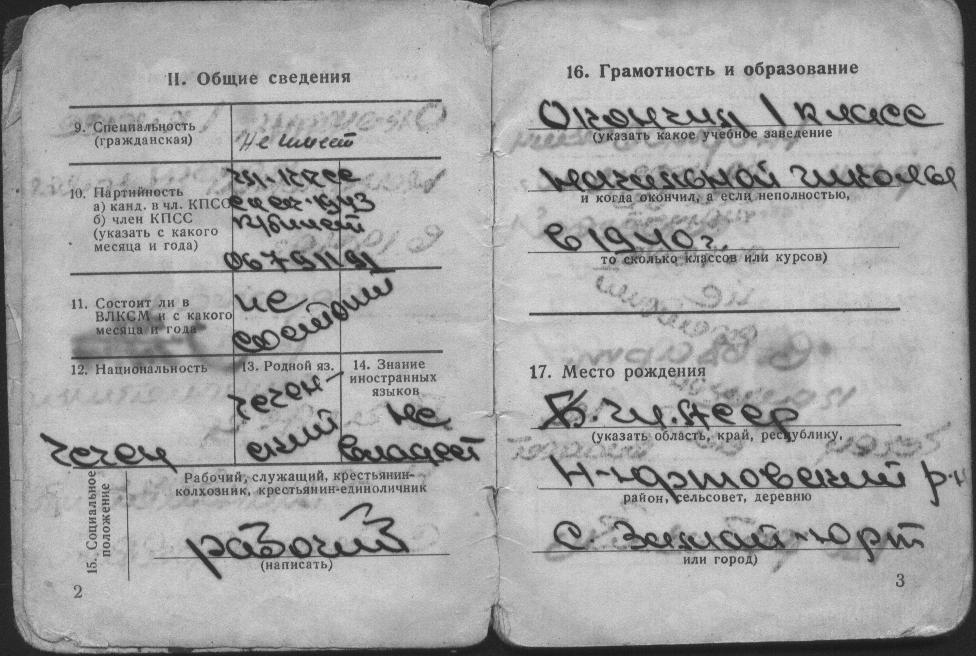 II. Общие сведения
9. Специальность
(гражданская)
Не имеет
10. Партийность
а) канд. в чл. КПСС
б) член КПСС
(указать с какого
месяца и года)
чл. КПСС
1943
п/билет
06791191
11. Состоит ли в
ВЛКСМ и с какого
месяца и года
не
состоит
12. Национальность
чечен
13. Родной яз.
чечен-
ский
14. Знание
иностранных
языков
не
владеет
15. Социальное
положение
Рабочий, служащий, крестьянин-
колхозник, крестьянин-единоличник
рабочий
(написать)
2
16. Грамотность и образование
Окончил 1 класс
(указать какое учебное заведение
начальной школы
и когда окончил, а если неполностью,
в 1940 г.
то сколько классов или курсов)
17. Место рождения
Б. Ч.И.АССР
(указать область, край, республику,
Н-Юртовский р-н
район, сельсовет, деревню
с. Замай-Юрт
или город)
3